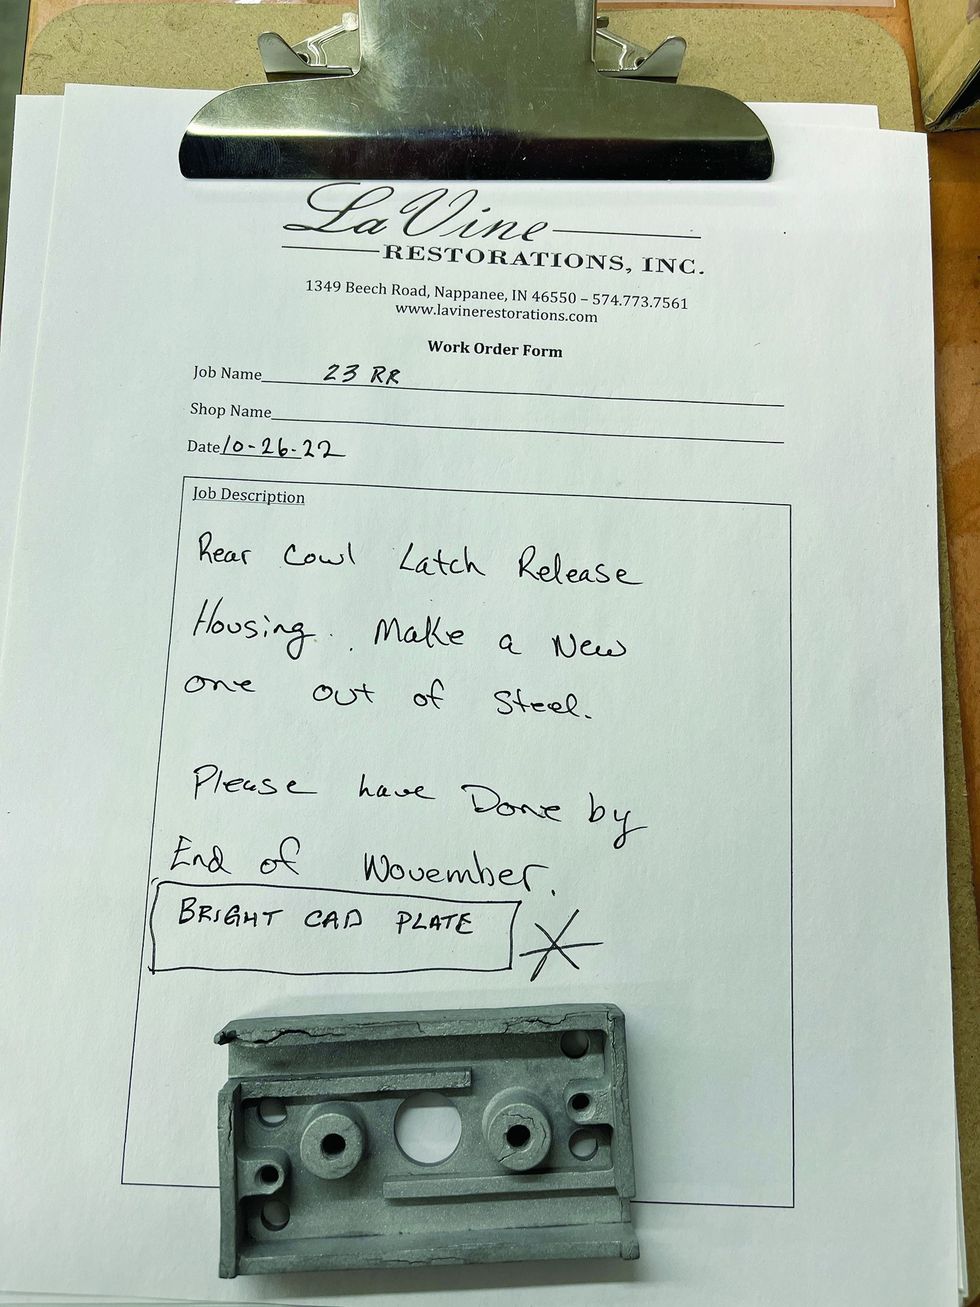 LaVine
RESTORATIONS, INC.
1349 Beech Road, Nappanee, IN 46550 – 574.773.7561
www.lavinerestorations.com
Work Order Form
Job Name 23 RR
Shop Name
Date 10-26-22
Job Description
Rear Cowl Latch Release
Housing. Make a New
one out of Steel.
Please have Done by
End of November.
BRIGHT CAD PLATE